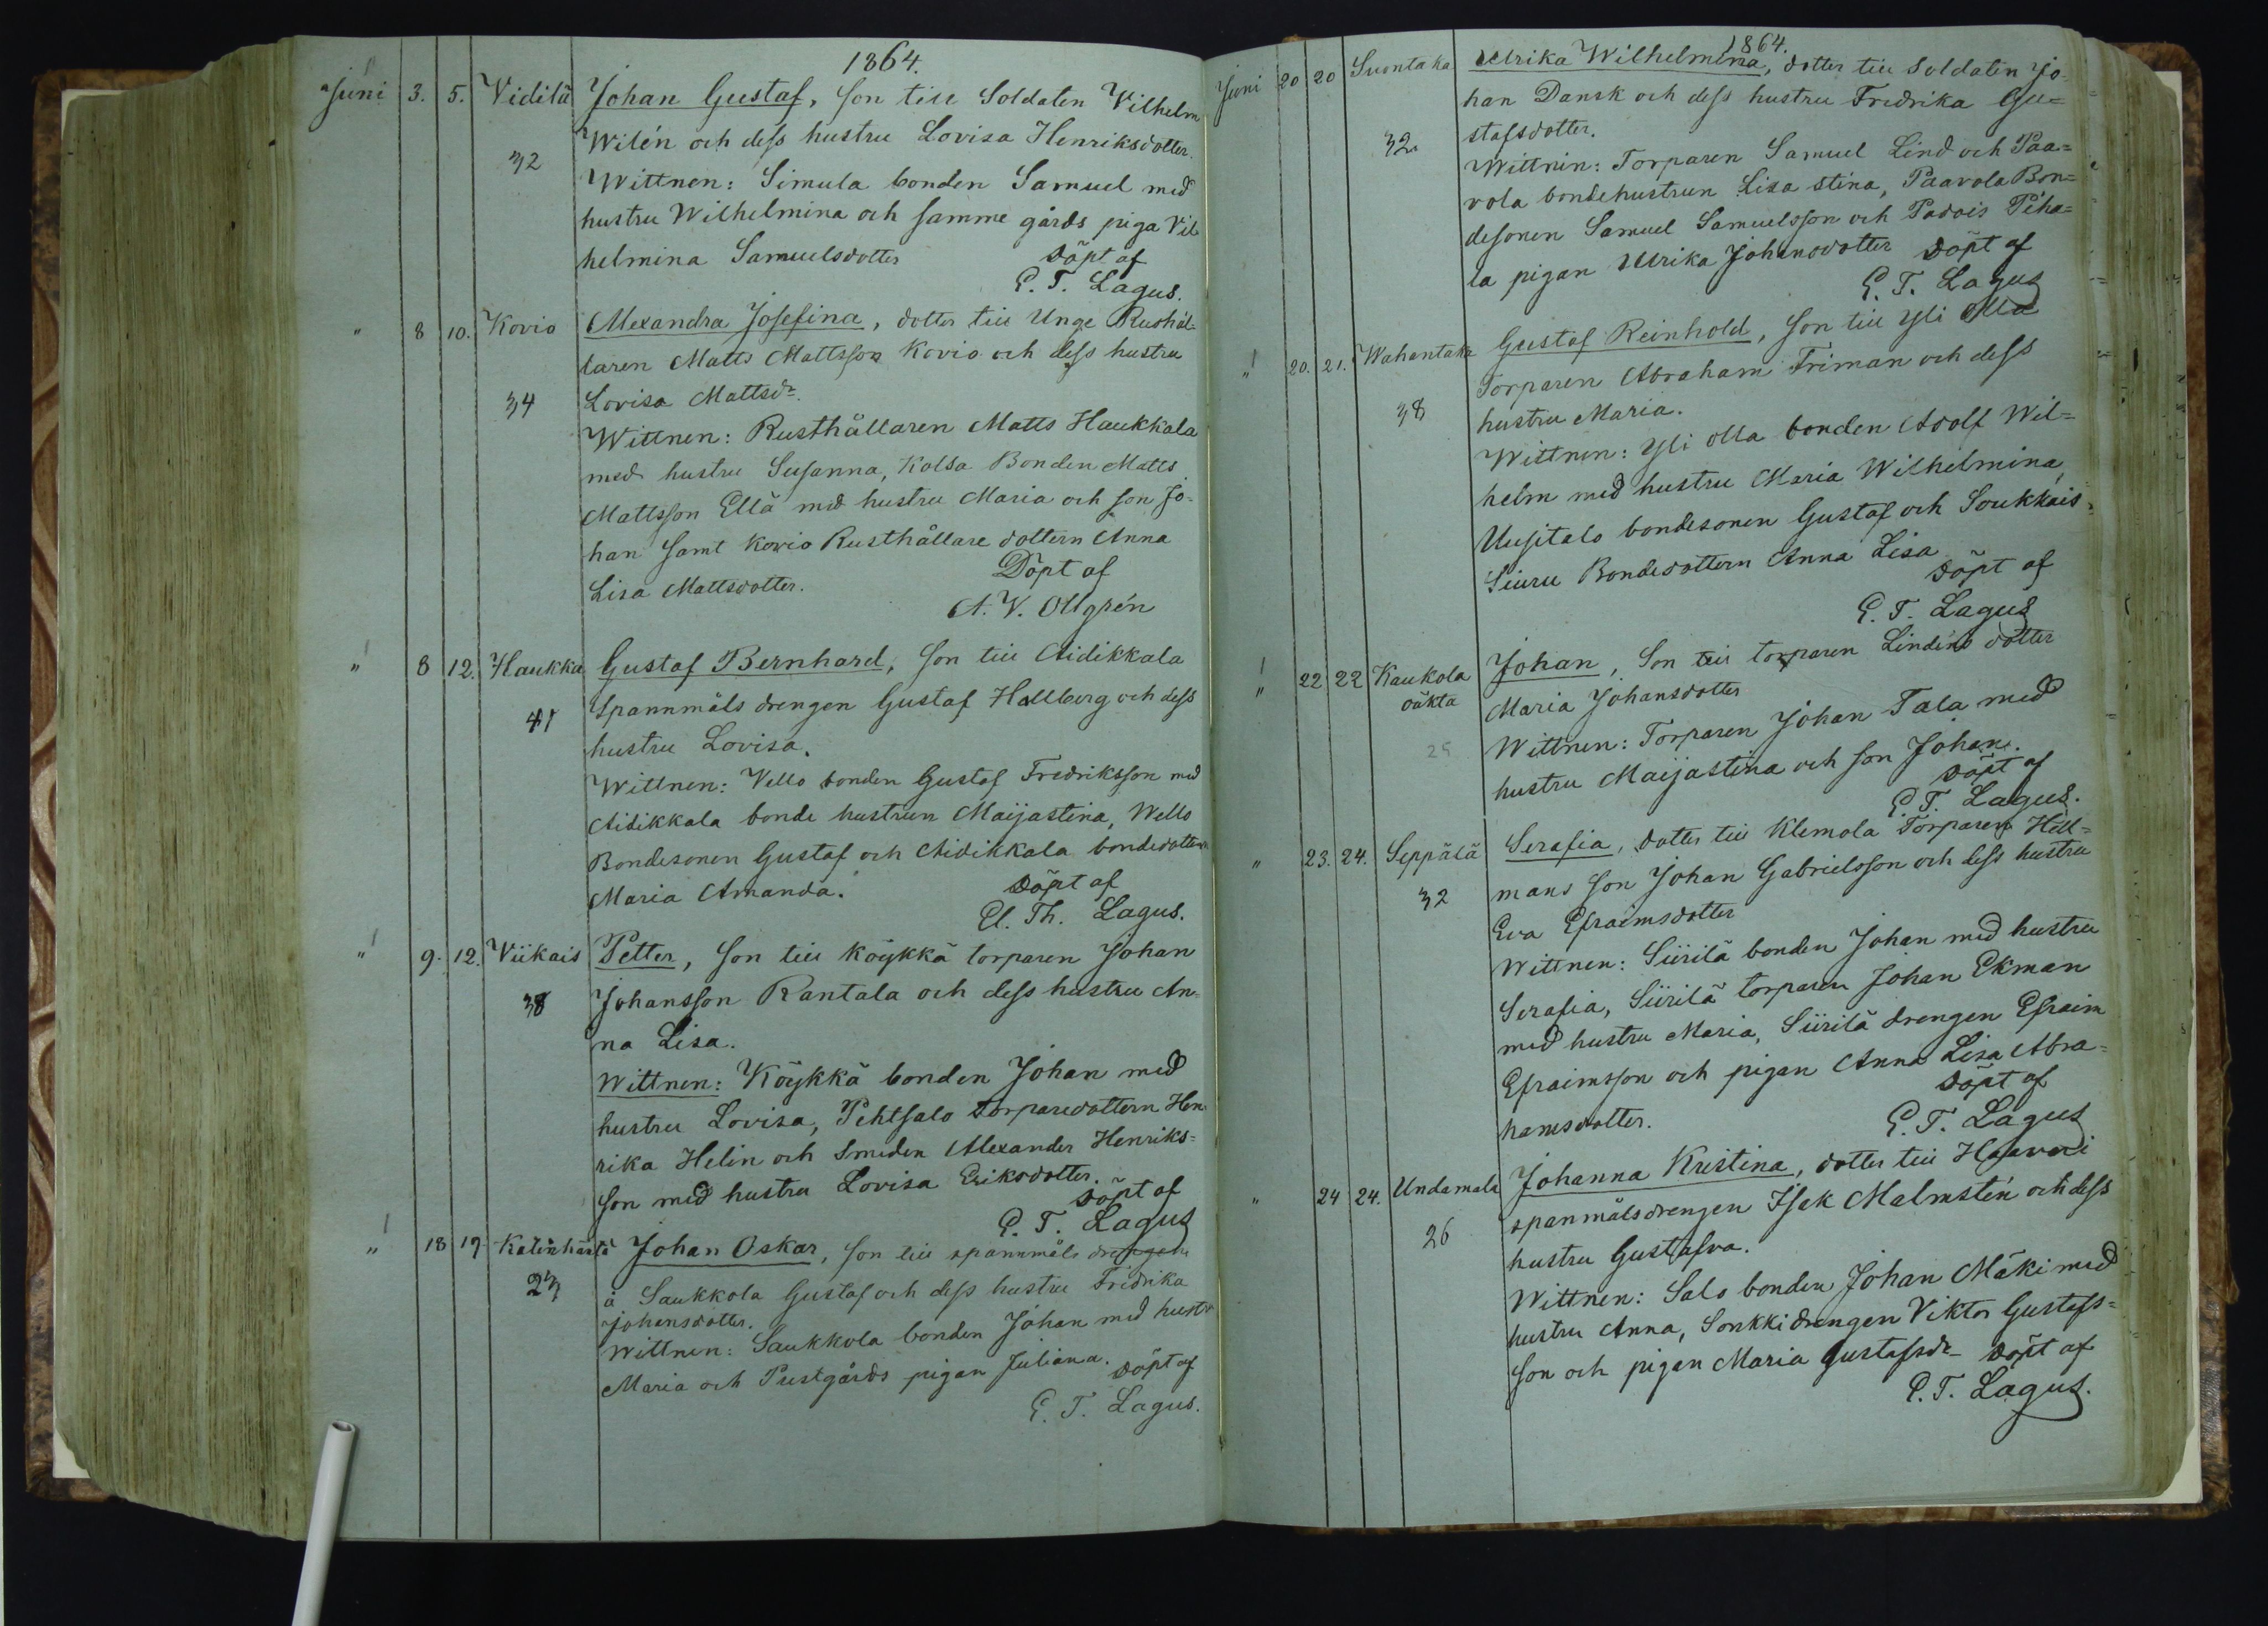 1864.
Juni 3. 5. Vidilä Johan Gustaf, Son till Soldaten Vilhelm
Wilén och dess hustru Lovisa Henriksdotter.
32 Wittnen: Simula bonden Samuel med
hustru Wilhelmina och samme gårds piga Vil
helmina Samuelsdotter döpt af
E. T. Lagus.
" 8 10. Kovio Alexandra Josefina, dotter till Unge Rusthål-
laren Matts Mattsson Kovio och dess hustru
34 Lovisa Mattsdr.
Wittnen: Rusthållaren Matts Haukkala
med hustru Susanna, Kolsa Bonden Matts
Mattsson Ellä med hustru Maria och son Jo-
han samt Kovio Rusthållare dottern Anna
Lisa Mattsdotter. Döpt af
A. V. Ollgrén
" 8 12. Haukka Gustaf Bernhard, Son till Aidikkala
41 Spannmåls drengen Gustaf Hallberg och dess
hustru Lovisa.
Wittnen: Vello bonden Gustaf Fredriksson med
Aidikkala bonde hustrun Maijastina, Wello
Bondesonen Gustaf och Aidikkala bondedottern
Maria Amanda. döpt af
El. Th. Lagus.
" 9. 12. Viikais Petter, Son till Köykkä torparen Johan
38 Johansson Rantala och dess hustru An-
na Lisa.
Wittnen: Köykkä bonden Johan med
hustru Lovisa, Pehtsalo torparedottern Hen
rika Helin och Smeden Alexander Henriks=
son med hustru Lovisa Eriksdotter.
döpt af
E. T. Lagus
" 18 19 Katinhäntä Johan Oskar, Son till spannmåls drengen
23 å Saukkola Gustaf och dess hustru Fridrika
Johansdotter.
Wittnen: Saukkola bonden Johan med hustr
Maria och Prestgårds pigan Juliana. döpt af
E. T. Lagus.
1864.
Juni 20 20 Suontaka Ulrika Wilhelmina, dotter till Soldaten Jo-
han Dansk och dess hustru Fredrika Gu=
32. stafsdotter.
Wittnen: Torparen Samuel Lind och Paa=
vola bondehustrun Lisa Stina, Paavola Bon=
desonen Samuel Samuelsson och Padois Piha=
la pigan Ulrika Johansdotter döpt af
E. T. Lagus
" 20. 21. Wahantaka Gustaf Reinhold, Son till Yli Olla
Torparen Abraham Friman och dess
38 hustru Maria.
Wittnen: Yli olla bonden Adolf Wil=
helm med hustru Maria Wilhelmina,
Uusitalo bondesonen Gustaf och Soukkais
Siuru Bondedottern Anna Lisa
döpt af
E. T. Lagus
" 22 22 Kaukola Johan, Son till torparen Lindéns dotter
oäkta Maria Johansdotter
25 Wittnen: Torparen Johan Tala med
hustru Maijastina och son Johan.
döpt af
E T. Lagus.
" 23. 24. Seppälä Serafia, dotter till Klemola Torparen Hell=
32 mans son Johan Gabrielsson och dess hustru
Eva Efraimsdotter
Wittnen: Siirilä bonden Johan med hustru
Serafia, Siirilä torparen Johan Ekman
med hustru Maria, Siirilä drengen Efraim
Efraimsson och pigan Anna Lisa Abra=
hamsdotter. döpt af
E. T. Lagus
" 24 24. Undamala Johanna Kristina, dotter till Haavari
26 spanmålsdrengen Isak Malmstén och dess
hustru Gustafva.
Wittnen: Salo bonden Johan Mäki med
hustru Anna, Sonkki drengen Viktor Gustafs=
son och pigan Maria Gustafsdr döpt af
E. T. Lagus.